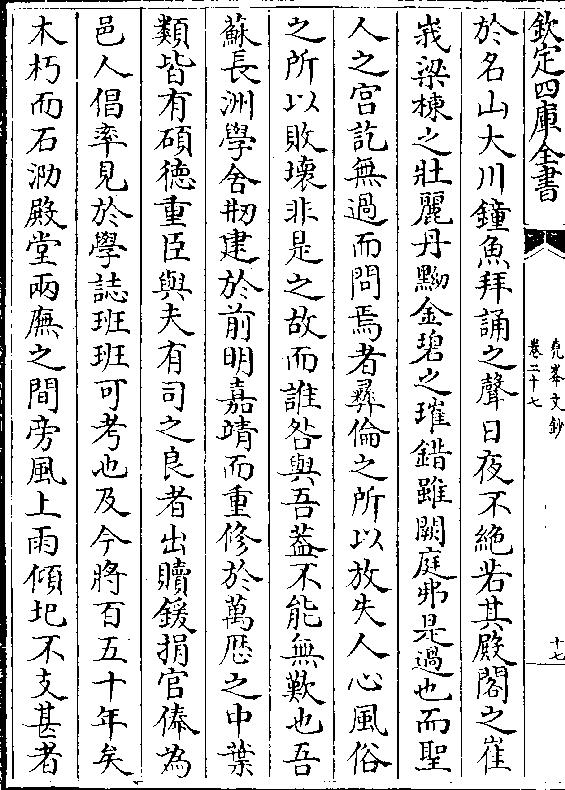 欽定四庫全書
堯峯文鈔
卷二十七
十七
於名山大川鐘魚拜誦之聲日夜不絶若其殿閣之崔
峩梁棟之壯麗丹黝金碧之璀錯雖闕庭弗是過也而聖
人之宮訖無過而問焉者彛倫之所以放失人心風俗
之所以敗壊非是之故而誰咎與吾葢不能無歎也吾
蘇長洲學舍刱建於前明嘉靖而重修於萬厯之中葉
類皆有碩徳重臣與夫有司之良者出贖鍰捐官俸為
邑人倡率見於學誌班班可考也及今將百五十年矣
木朽而石泐殿堂兩廡之間旁風上雨傾圮不支甚者